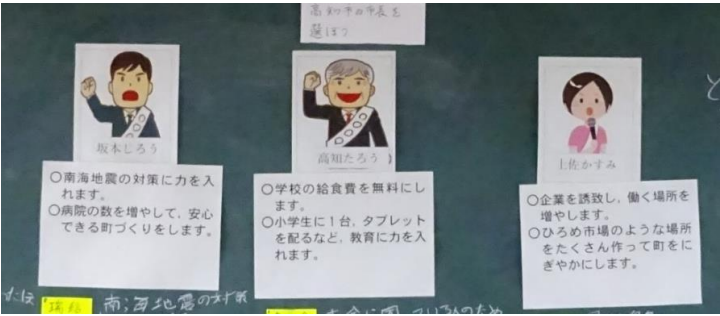 高知市の市長を
選ぼう
坂本しろう
○南海地震の対策に力を入
れます。
○病院の数を増やして、安心
できる町づくりをします。
高知たろう
○学校の給食費を無料にし
ます。
○小学生に1台、タブレット
を配るなど、教育に力を入
れます。
土佐かすみ
○企業を誘致し、働く場所を
増やします。
○ひろめ市場のような場所
をたくさん作って町をに
ぎやかにします。
と
南海地震の対策